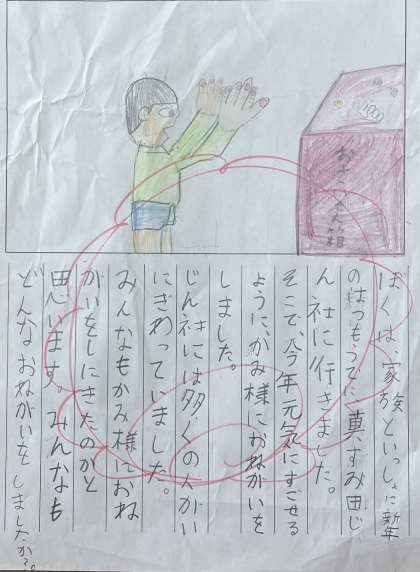 おさいせん箱
100
ぼくは、家族といっしょに新年
のはつもうでに真すみ田じ
ん社に行きました。
そこで、今年元気にすごせる
ように、かみ様におねがいを
しました。
じん社には多くの人がい
にぎわっていました。
みんなもかみ様におね
がいをしにきたのかと
思います。みんなも
どんなおねがいをしましたか?。